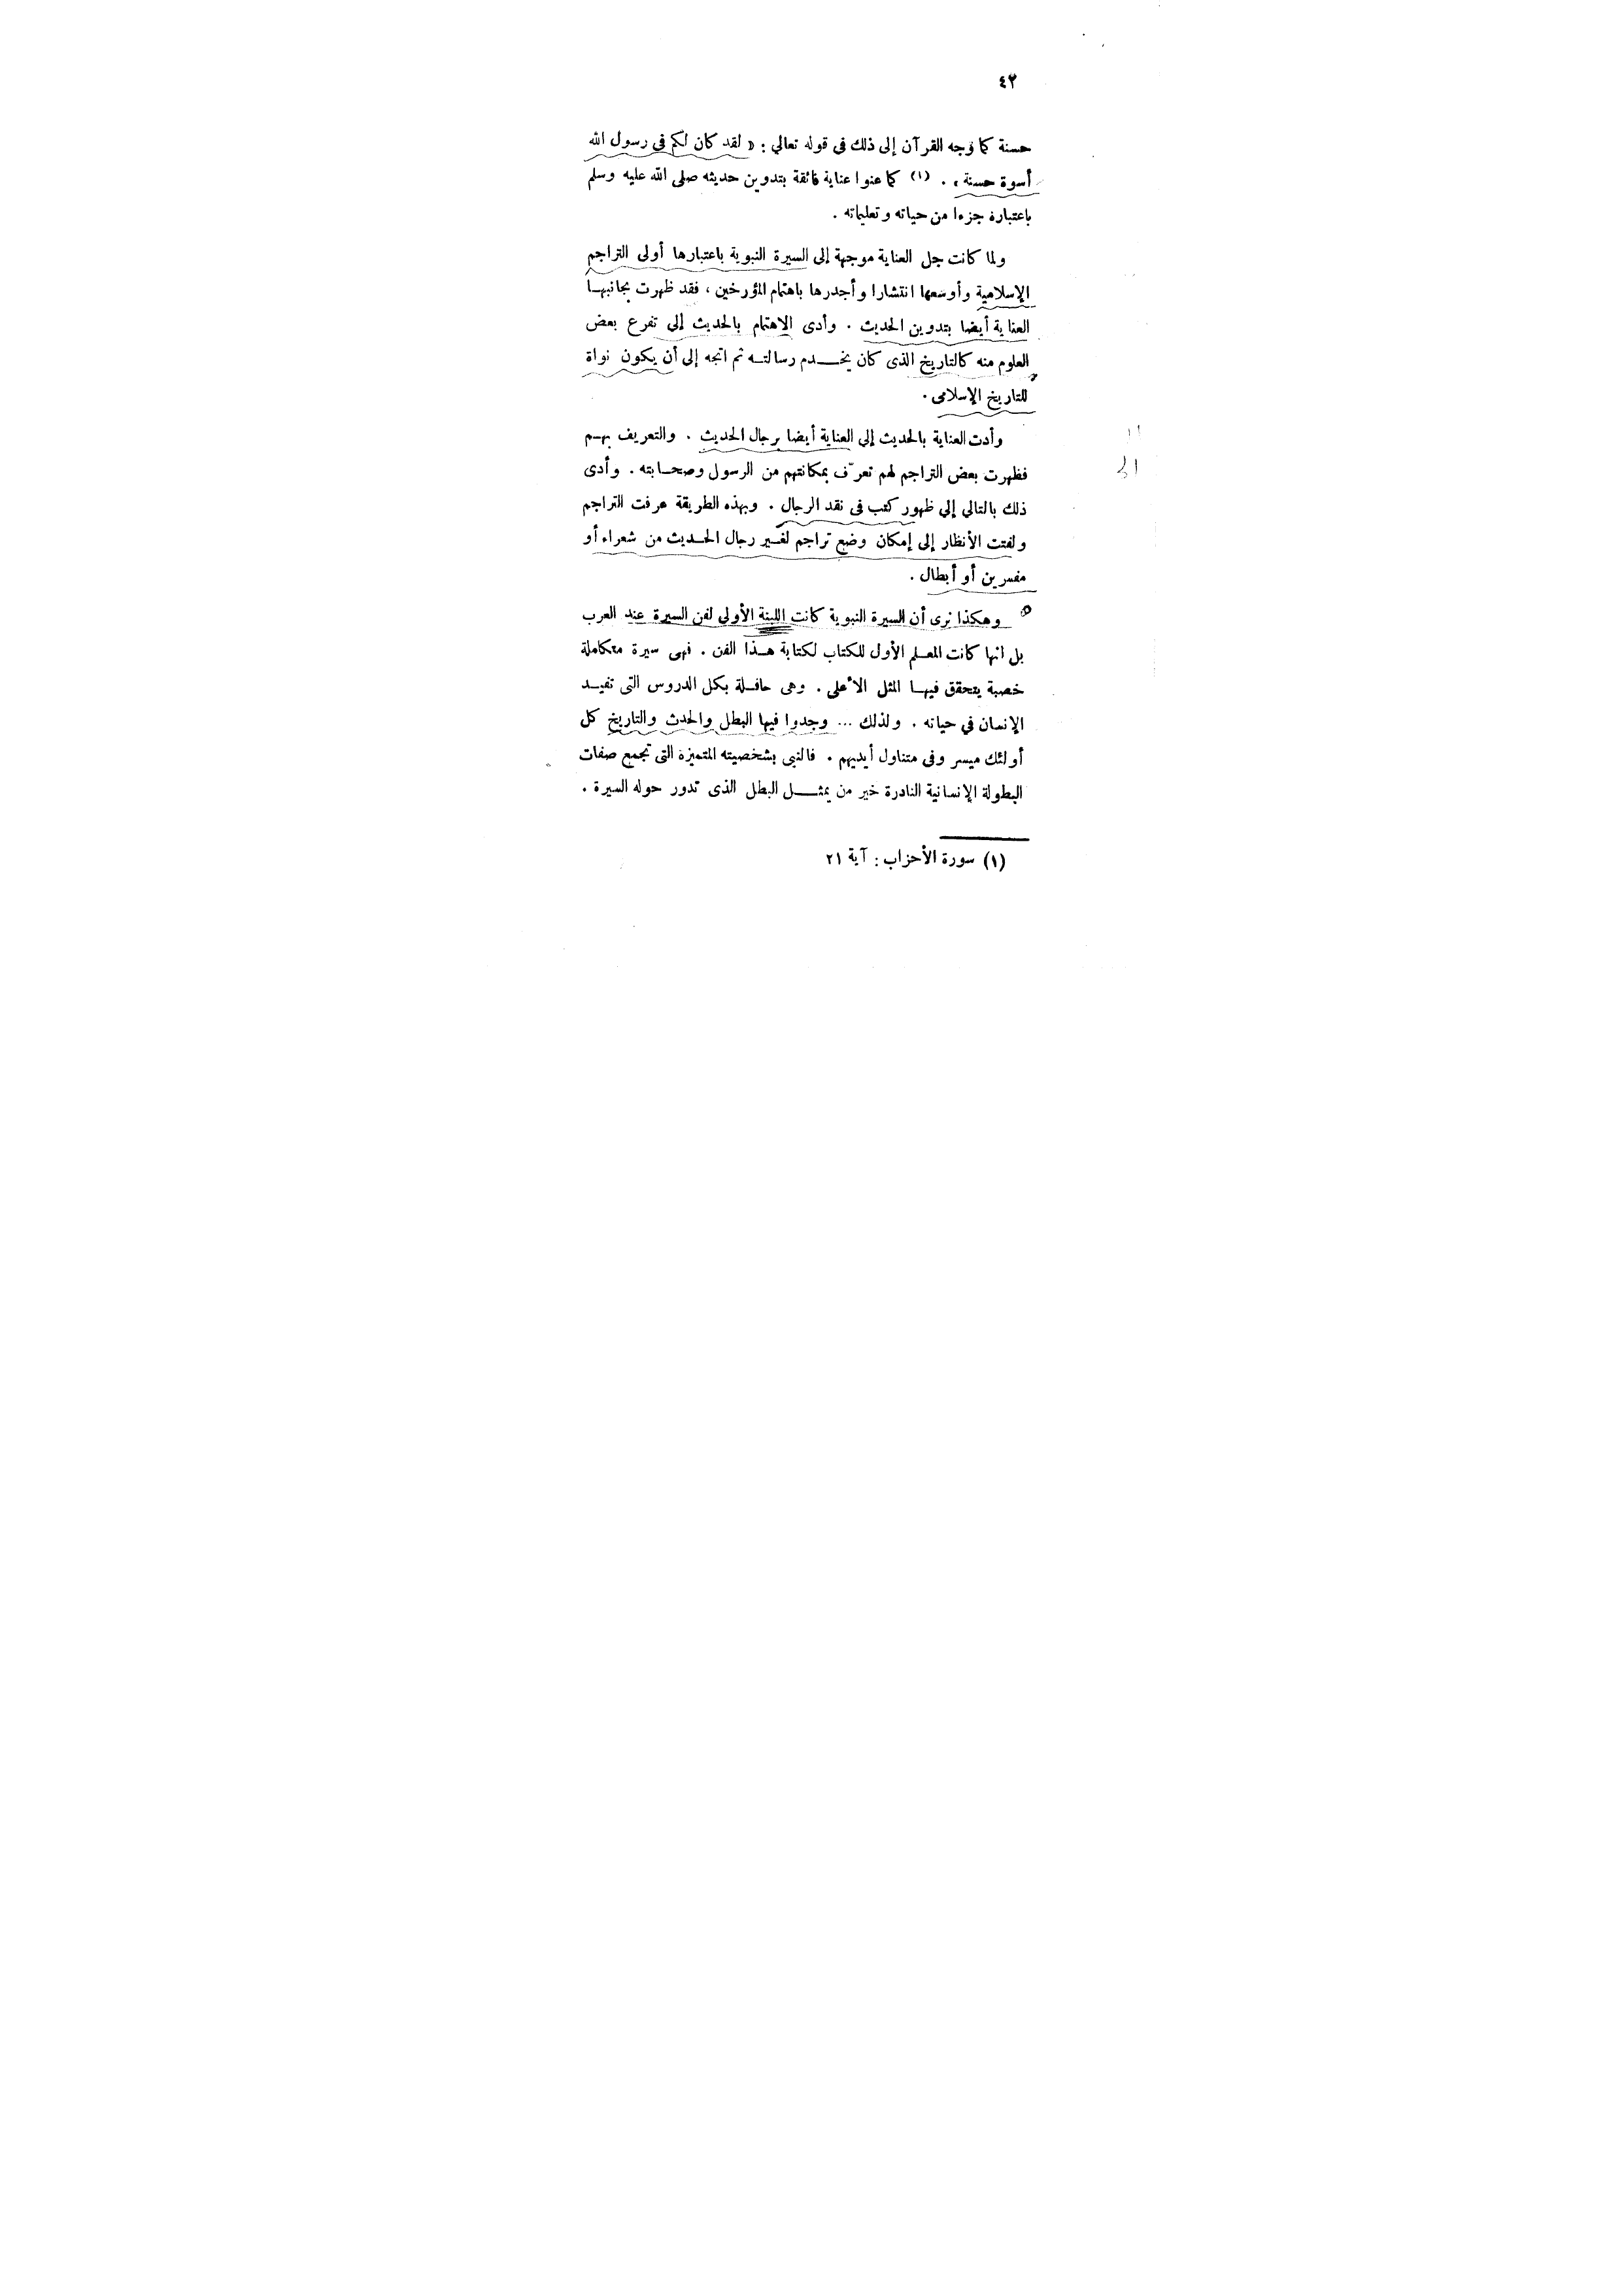 ٤٢
حسنة كما وجه القرآن إلى ذلك فى قوله تعالى : « لقد كان لكم فى رسول الله
أسوة حسنة » . (١) كما عنوا عناية فائقة بتدوين حديثه صلى الله عليه وسلم
باعتباره جزءا من حياته وتعليماته .
ولما كانت جل العناية موجهة إلى السيرة النبوية باعتبارها أولى التراجم
الإسلامية وأوسعها انتشارا وأجدرها باهتمام المؤرخين ، فقد ظهرت بجانبهـا
العناية أيضا بتدوين الحديث . وأدى الاهتمام بالحديث إلى تفرع بعض
العلوم منه كالتاريخ الذى كان يخـــدم رسالتــه ثم اتجه إلى أن يكون نواة
للتاريخ الإسلامى .
وأدت العناية بالحديث إلى العناية أيضا برجال الحديث . والتعريف بهـم
فظهرت بعض التراجم لهم تعرّف بمكانتهم من الرسول وصحـابته . وأدى
ذلك بالتالى إلى ظهور كتب فى نقد الرجال . وبهذه الطريقة عرفت التراجم
ولفتت الأنظار إلى إمكان وضع تراجم لغـير رجال الحـديث من شعراء أو
مفسرين أو أبطال .
وهكذا نرى أن السيرة النبوية كانت اللبنة الأولى لفن السيرة عند العرب
بل انها كانت المعـلم الأول للكتاب لكتابة هـذا الفن . فهى سيرة متكاملة
خصبة يتحقق فيهـا المثل الأعلى . وهى حافـلة بكل الدروس التى تفيـد
الإنسان في حياته . ولذلك ... وجدوا فيها البطل والحدث والتاريخ كل
أولئك ميسر وفى متناول أيديهم . فالنبى بشخصيته المتميزة التى تجمع صفات
البطولة الإنسانية النادرة خير من يمثـــل البطل الذى تدور حوله السيرة .
(١) سورة الأحزاب : آية ٢١